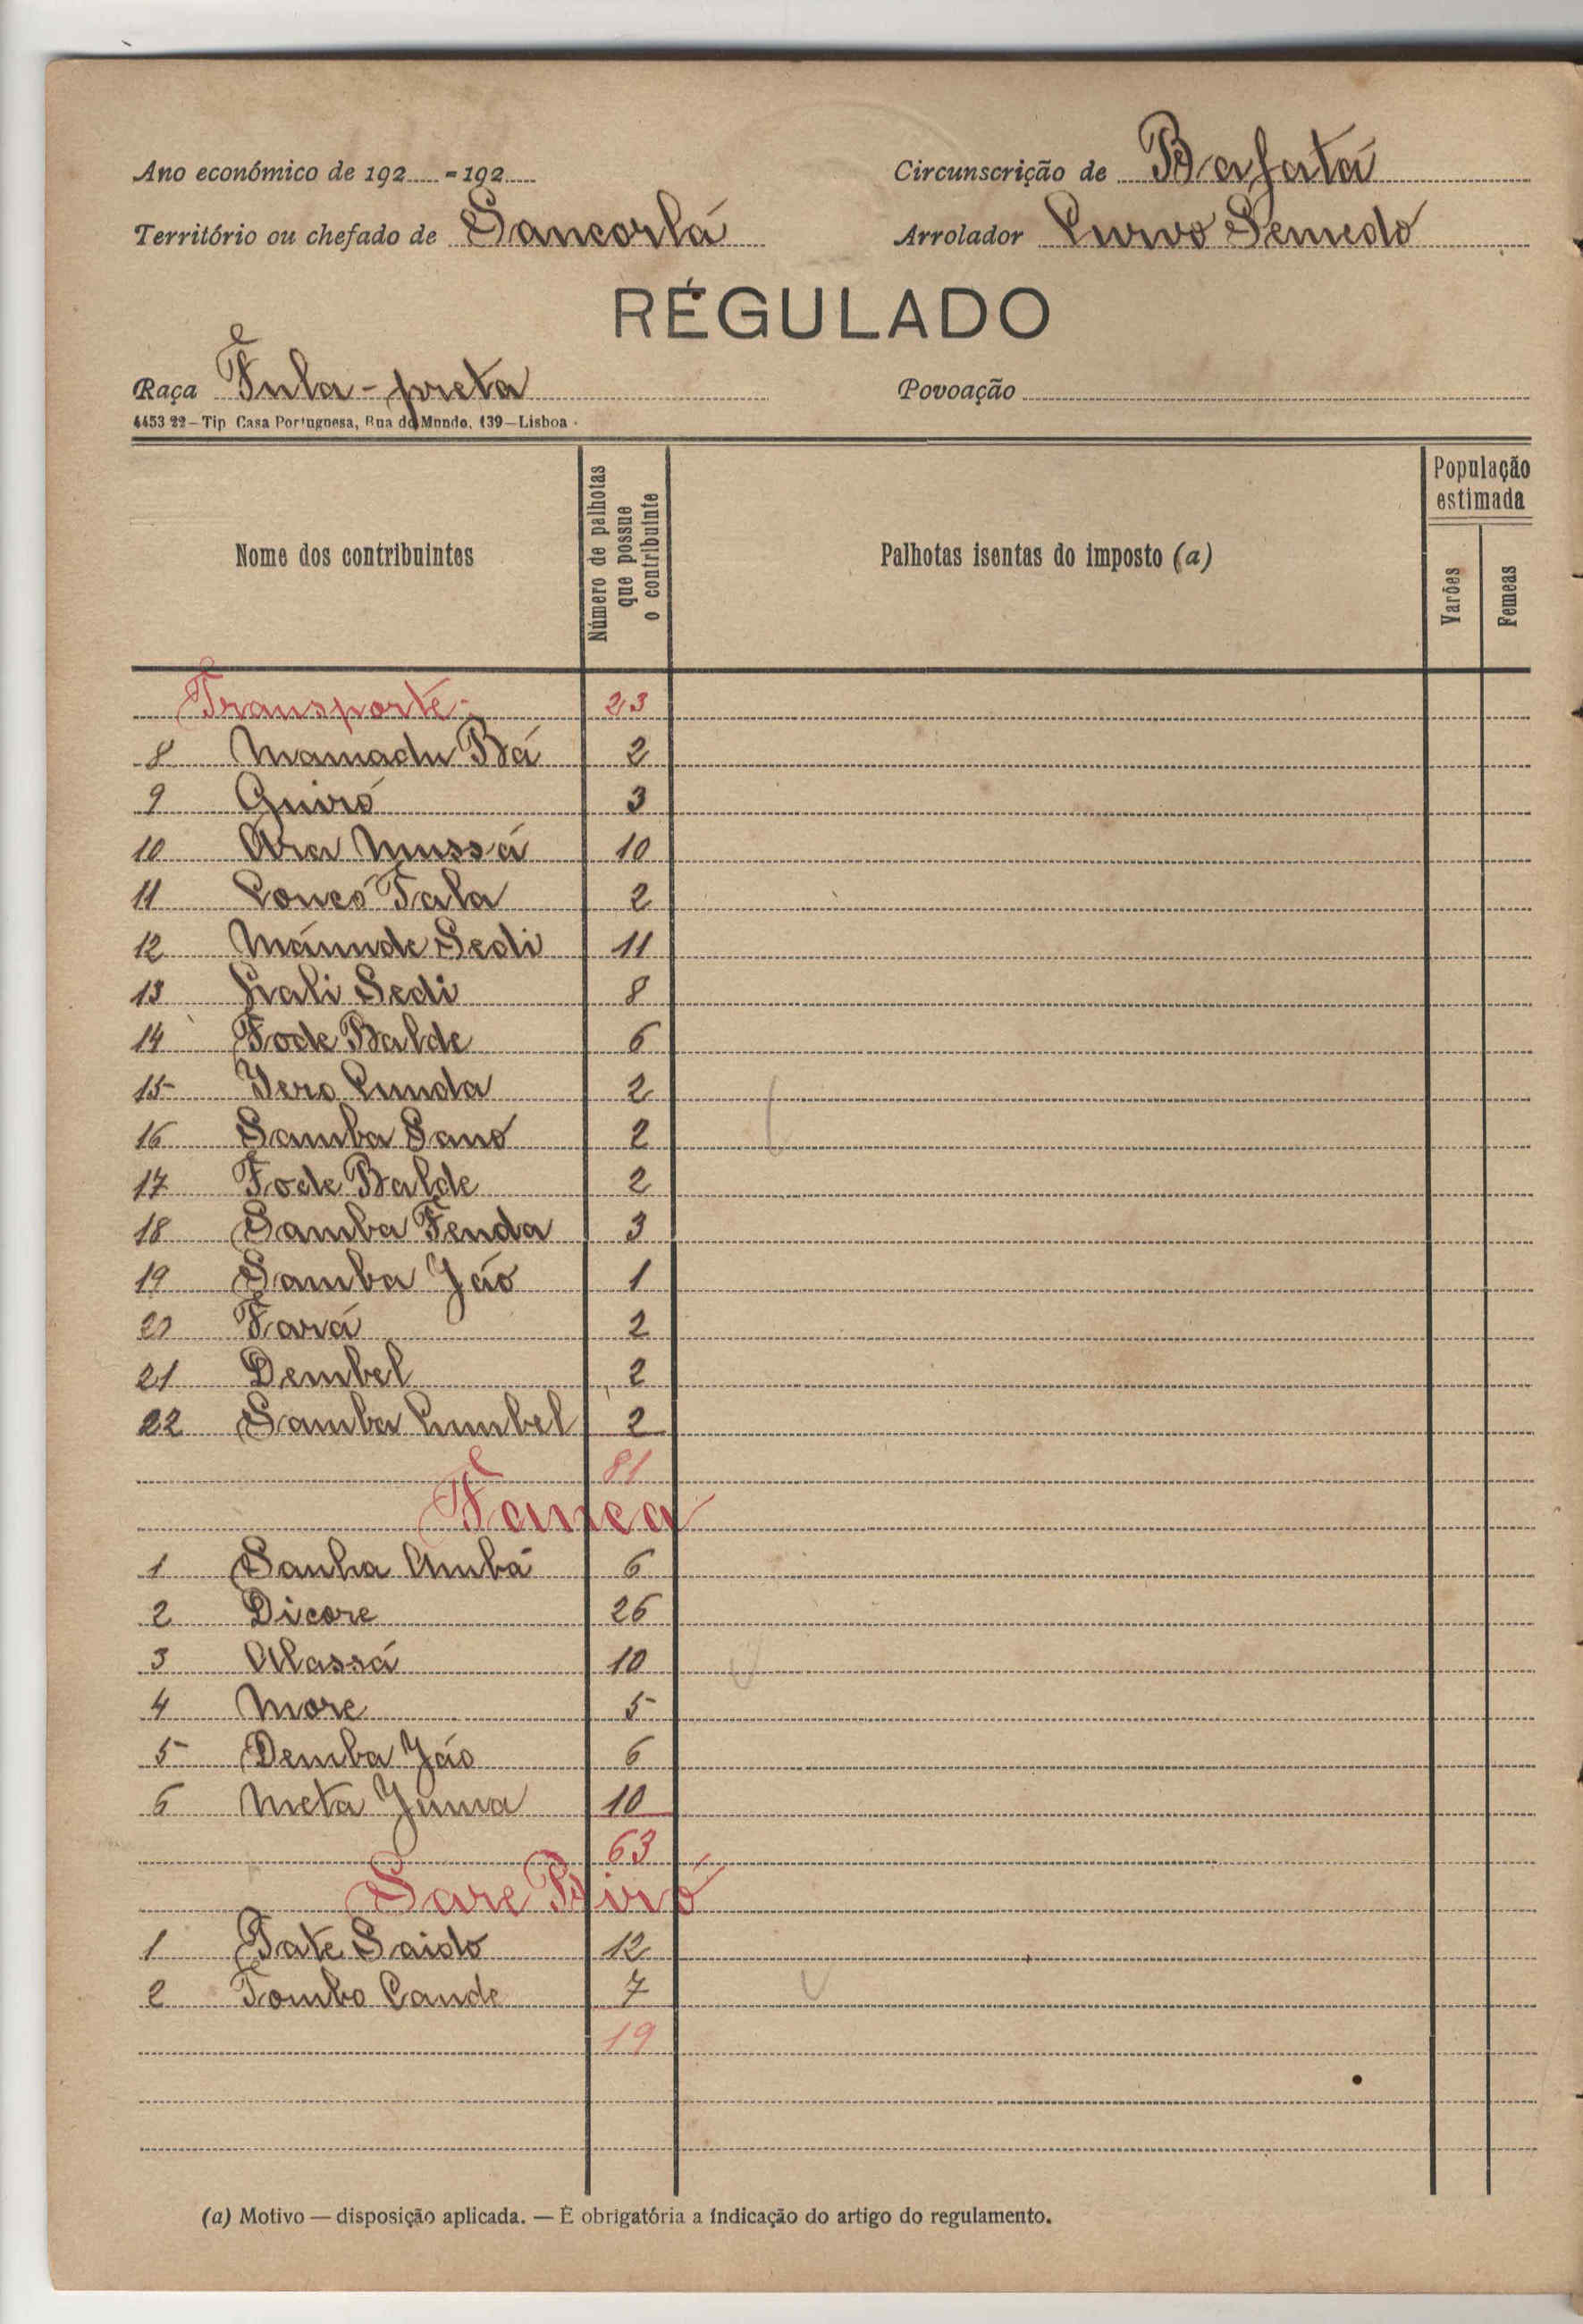 Ano económico de 192 - 192
Circunscrição de Bafatá
Território ou chefado de Sancorlá
Arrolador Curvo Semedo
RÉGULADO
Raça Fula-preta
Povoação
4453 22—Tip Casa Portuguesa, Rua do Mundo, 139—Lisboa
Nome dos contribuintes
Número de palhotas que possue o contribuinte
Palhotas isentas do imposto (a)
População estimada
Varões
Femeas
Transporte 23
8 Mamadu Bá 2
9 Guiró 3
10 Ara Mussá 10
11 Concó Tala 2
12 Máunde Sedi 11
13 Sedi 8
14 Fode Balde 6
15 Iero Cunda 2
16 Samba Sano 2
17 Fode Balde 2
18 Samba Fenda 3
19 Samba Jáo 1
20 Fará 2
21 Dembel 2
22 Samba Cumbel 2
81
Fanca
1 Sanha Umbá 6
2 Dicore 26
3 Alassá 10
4 More 5
5 Demba Jáo 6
6 Meta Juma 10
63
Sare Biró
1 Pate Saido 12
2 Tombo Cande 7
19
(a) Motivo — disposição aplicada. — É obrigatória a indicação do artigo do regulamento.